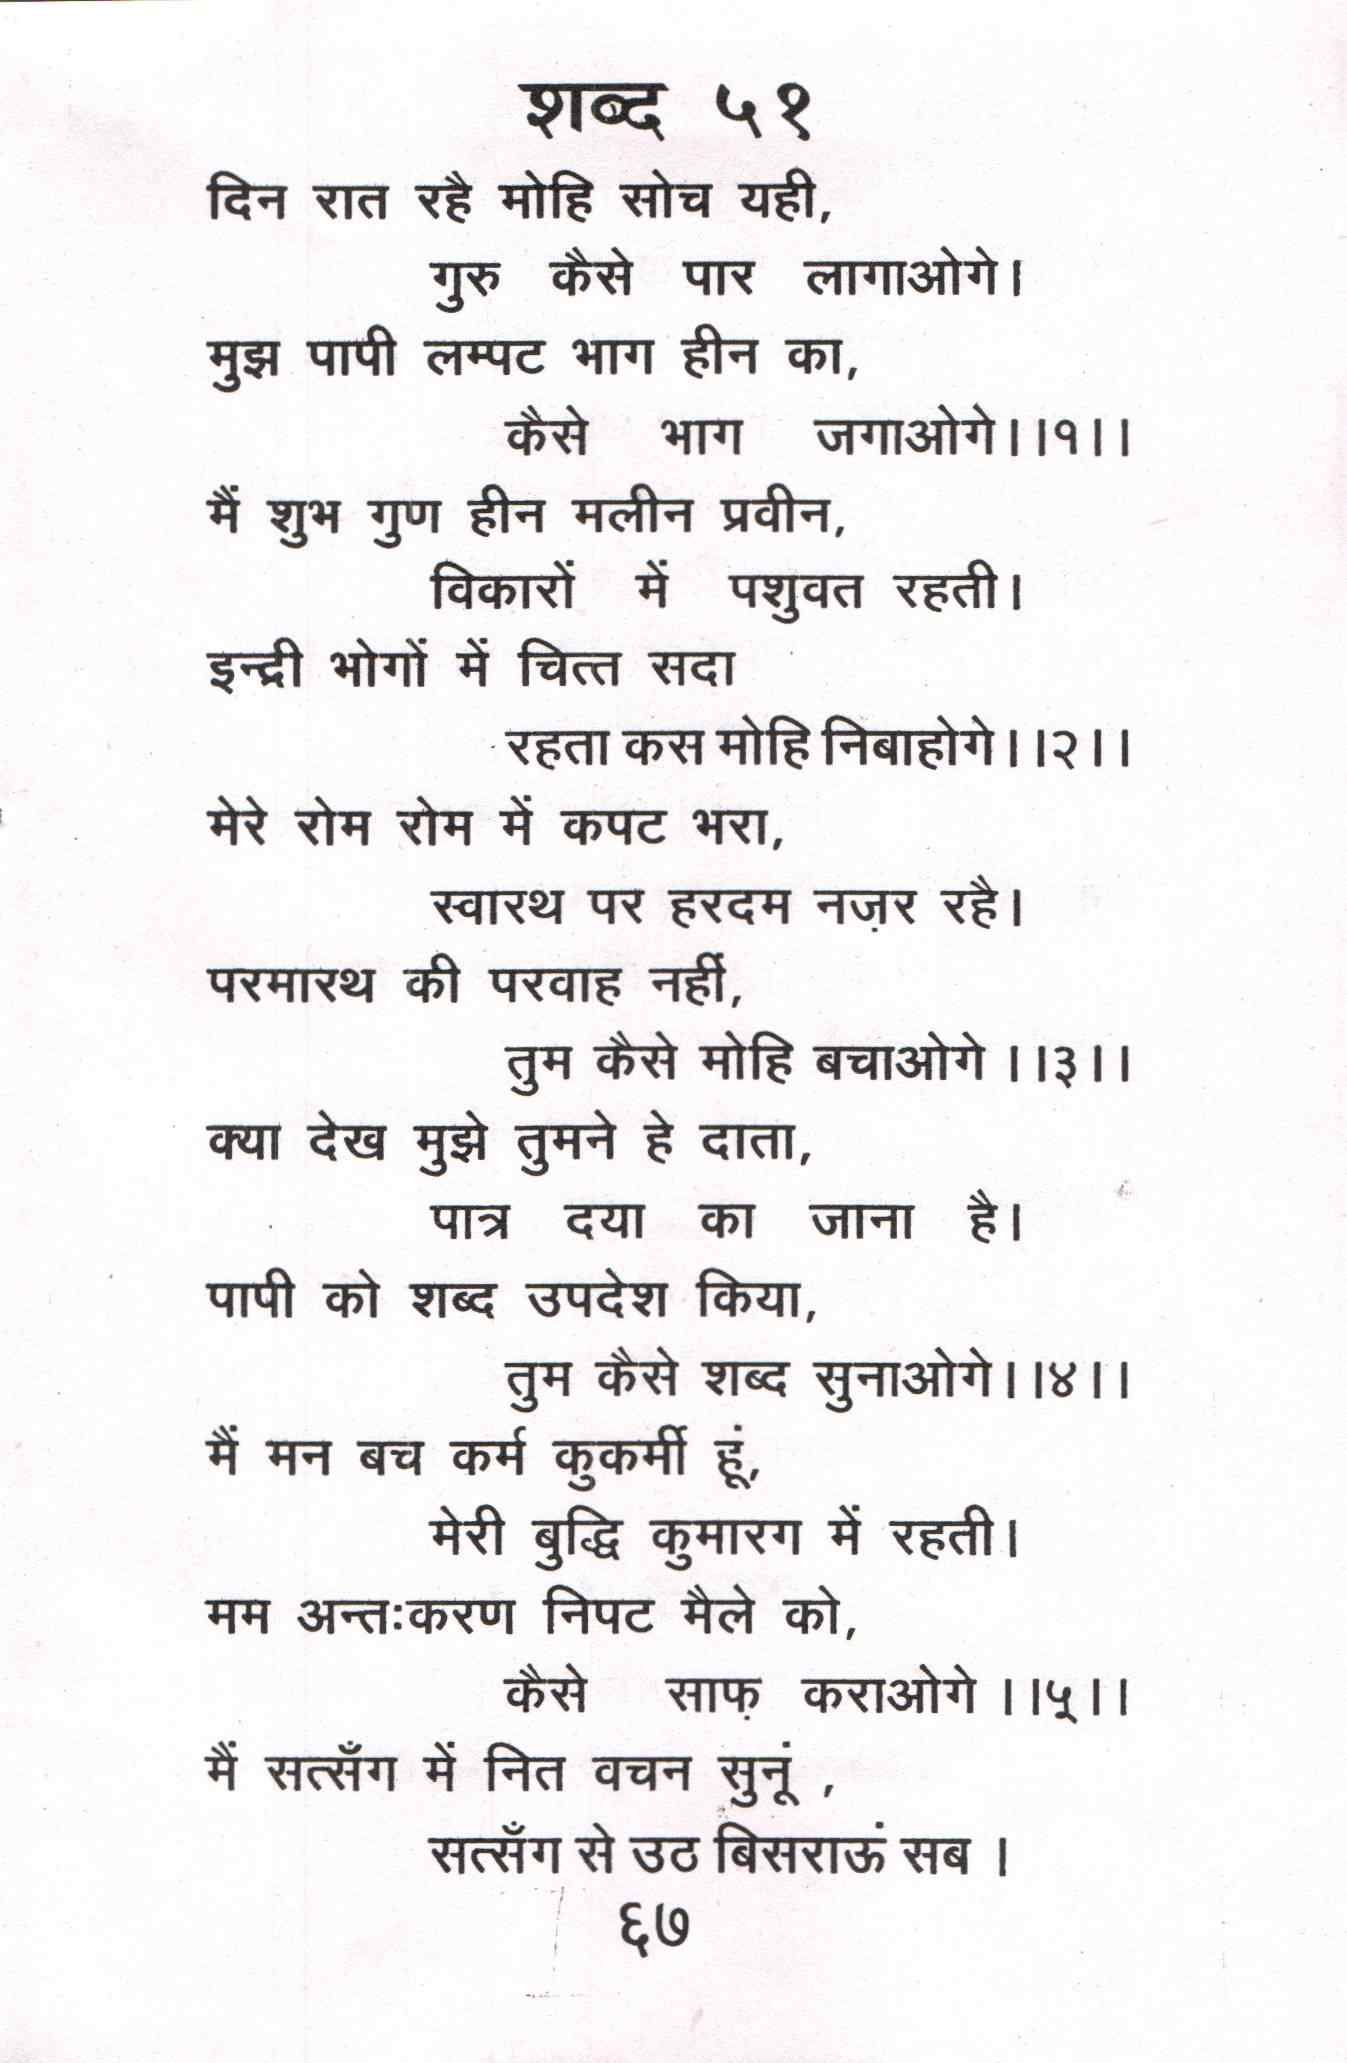 शब्द ५१
दिन रात रहै मोहि सोच यही,
गुरु कैसे पार लागाओगे।
मुझ पापी लम्पट भाग हीन का,
कैसे भाग जगाओगे।।१।।
मैं शुभ गुण हीन मलीन प्रवीन,
विकारों में पशुवत रहती।
इन्द्री भोगों में चित्त सदा
रहता कस मोहि निबाहोगे।।२।।
मेरे रोम रोम में कपट भरा,
स्वारथ पर हरदम नज़र रहै।
परमारथ की परवाह नहीं,
तुम कैसे मोहि बचाओगे ।।३।।
क्या देख मुझे तुमने हे दाता,
पात्र दया का जाना है।
पापी को शब्द उपदेश किया,
तुम कैसे शब्द सुनाओगे।।४।।
मैं मन बच कर्म कुकर्मी हूं,
मेरी बुद्धि कुमारग में रहती।
मम अन्तःकरण निपट मैले को,
कैसे साफ़ कराओगे ।।५।।
मैं सत्सँग में नित वचन सुनूं ,
सत्सँग से उठ बिसराऊं सब ।
६७